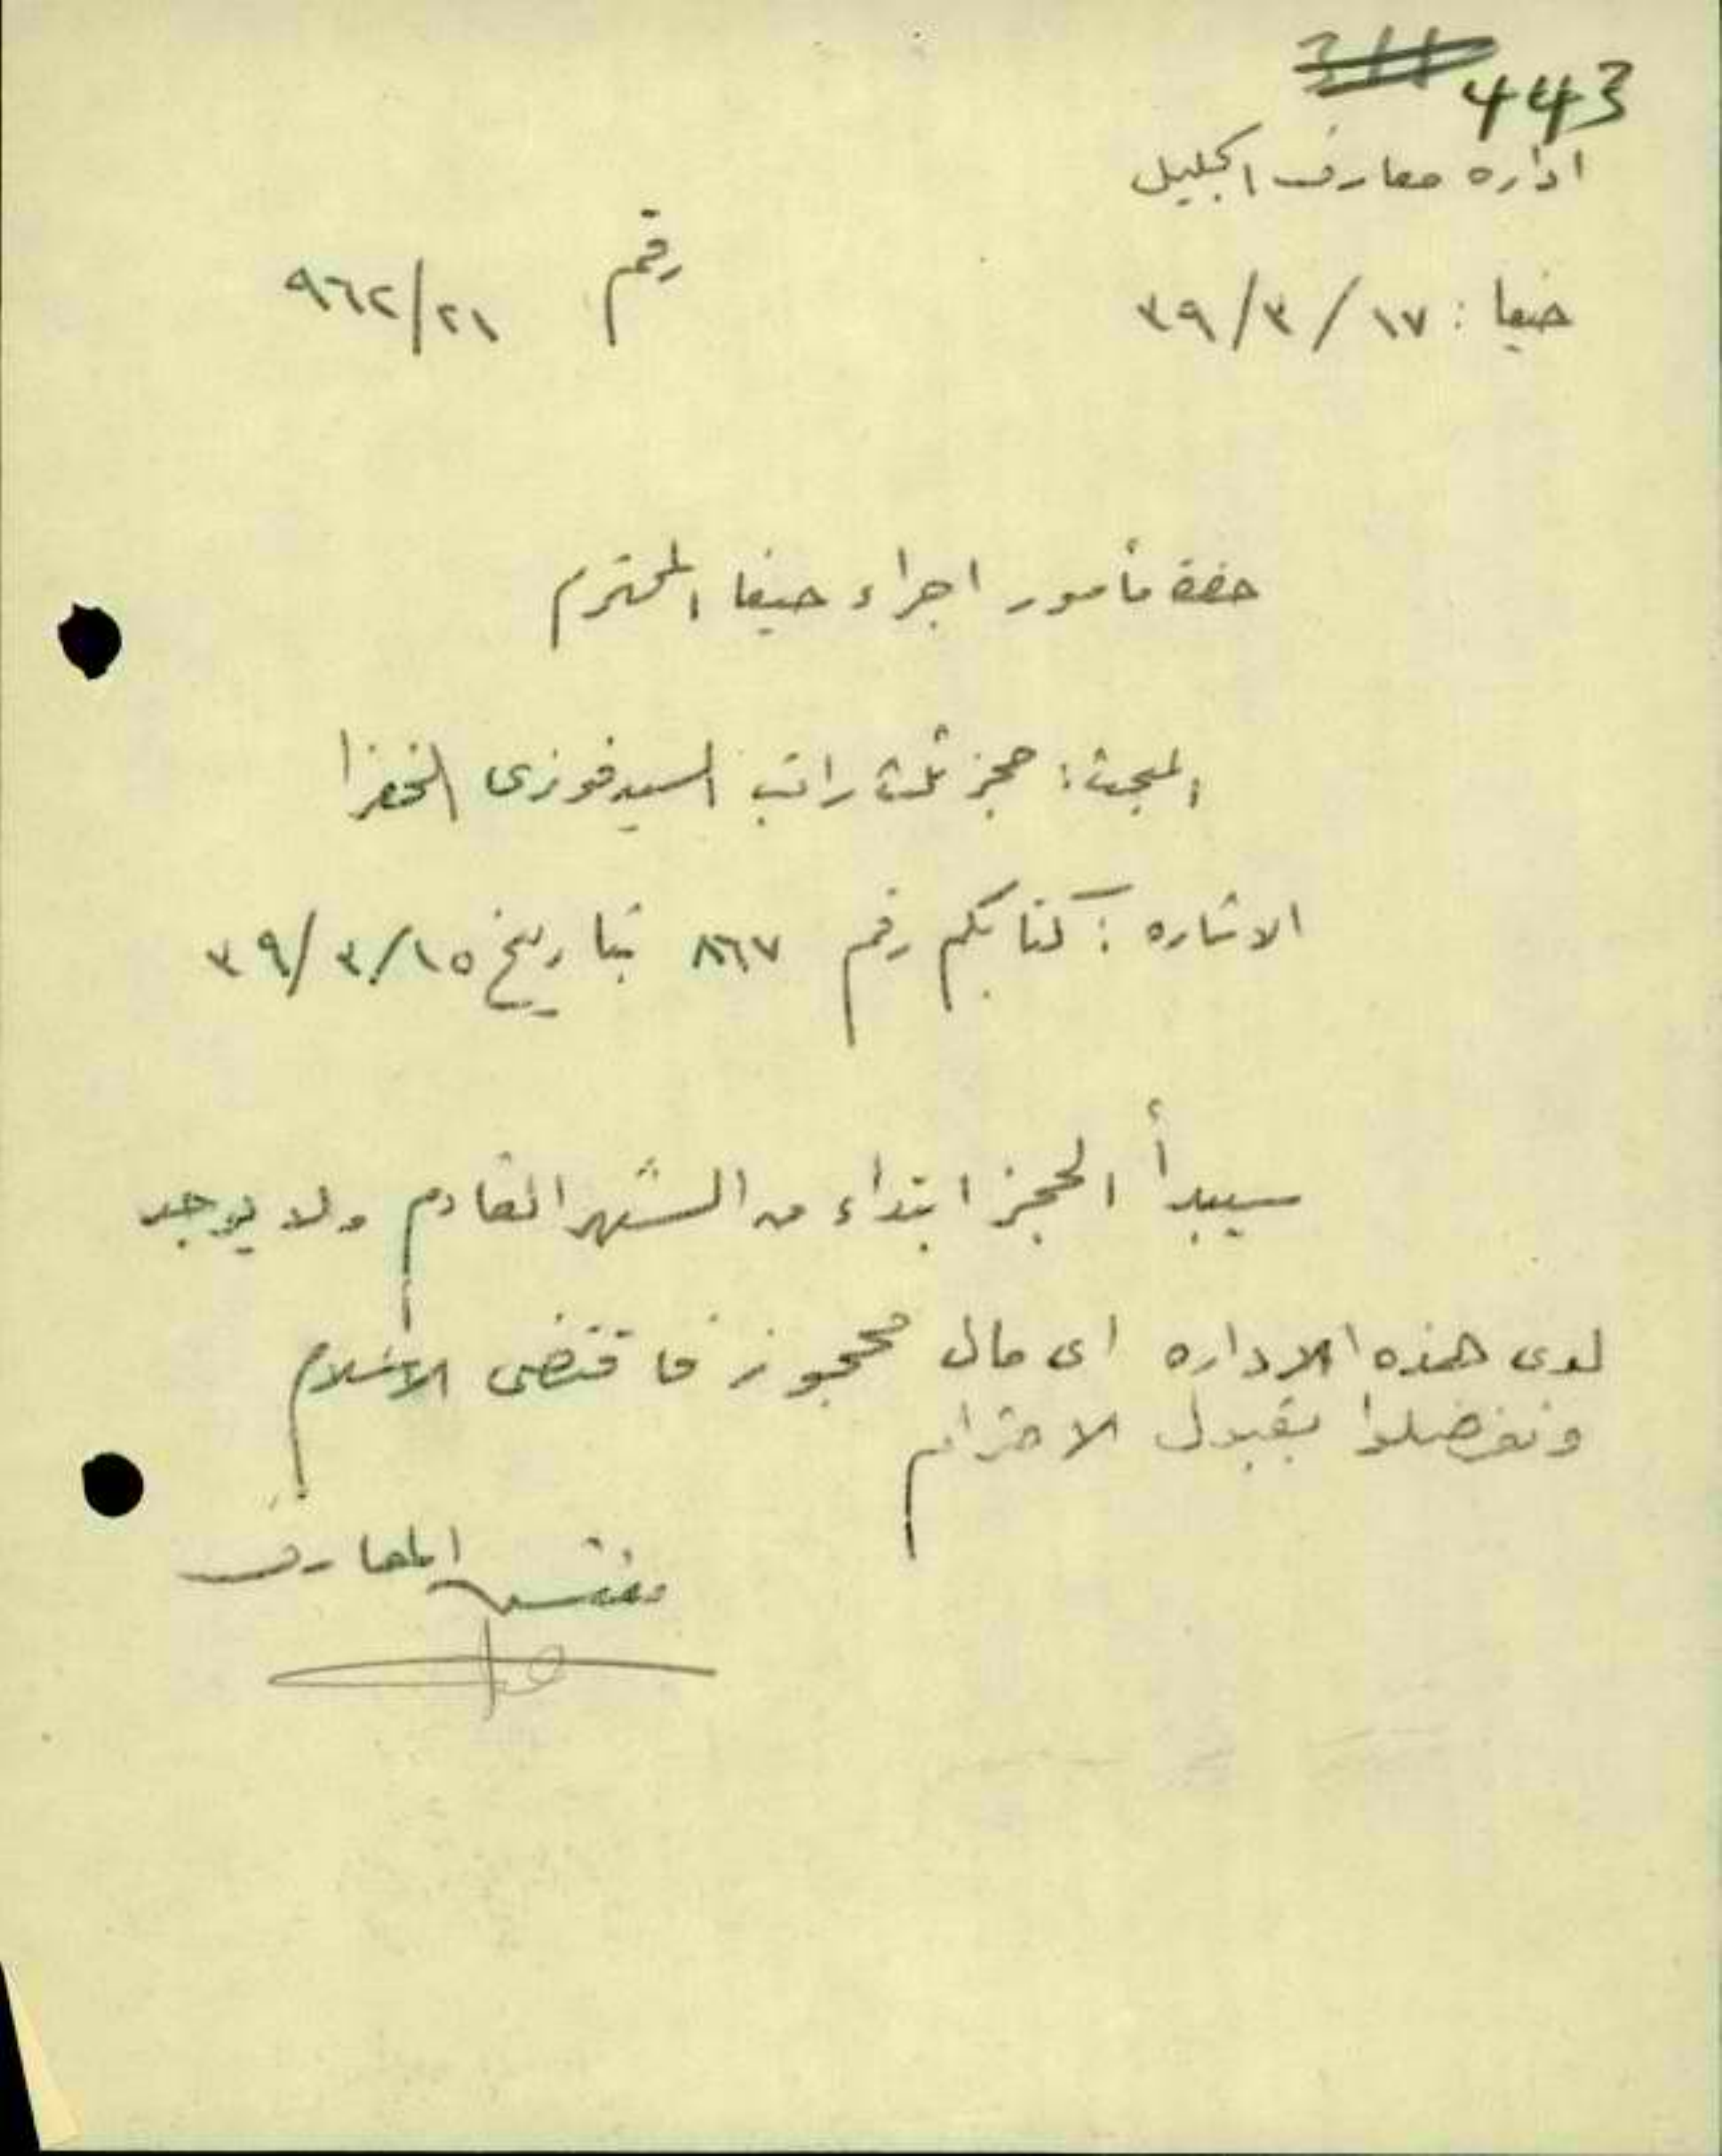 443
اداره معارف الجليل
حيفا : ١٧ / ٣ / ٣٩ رقم ٩٦٢/٢١
حضرة مأمور اجراء حيفا المحترم
المبحث : حجز ثلث راتب السيد فوزى الخضرا
الاشاره : كتابكم رقم ٨٦٧ بتاريخ ١٥/٣/٣٩
سيبدأ الحجز ابتداء من الشهر القادم ولا يوجد
لدى هذه الاداره اى مال محجوز فاقتضى الاعلام
وتفضلوا بقبول الاحترام
مفتش المعارف